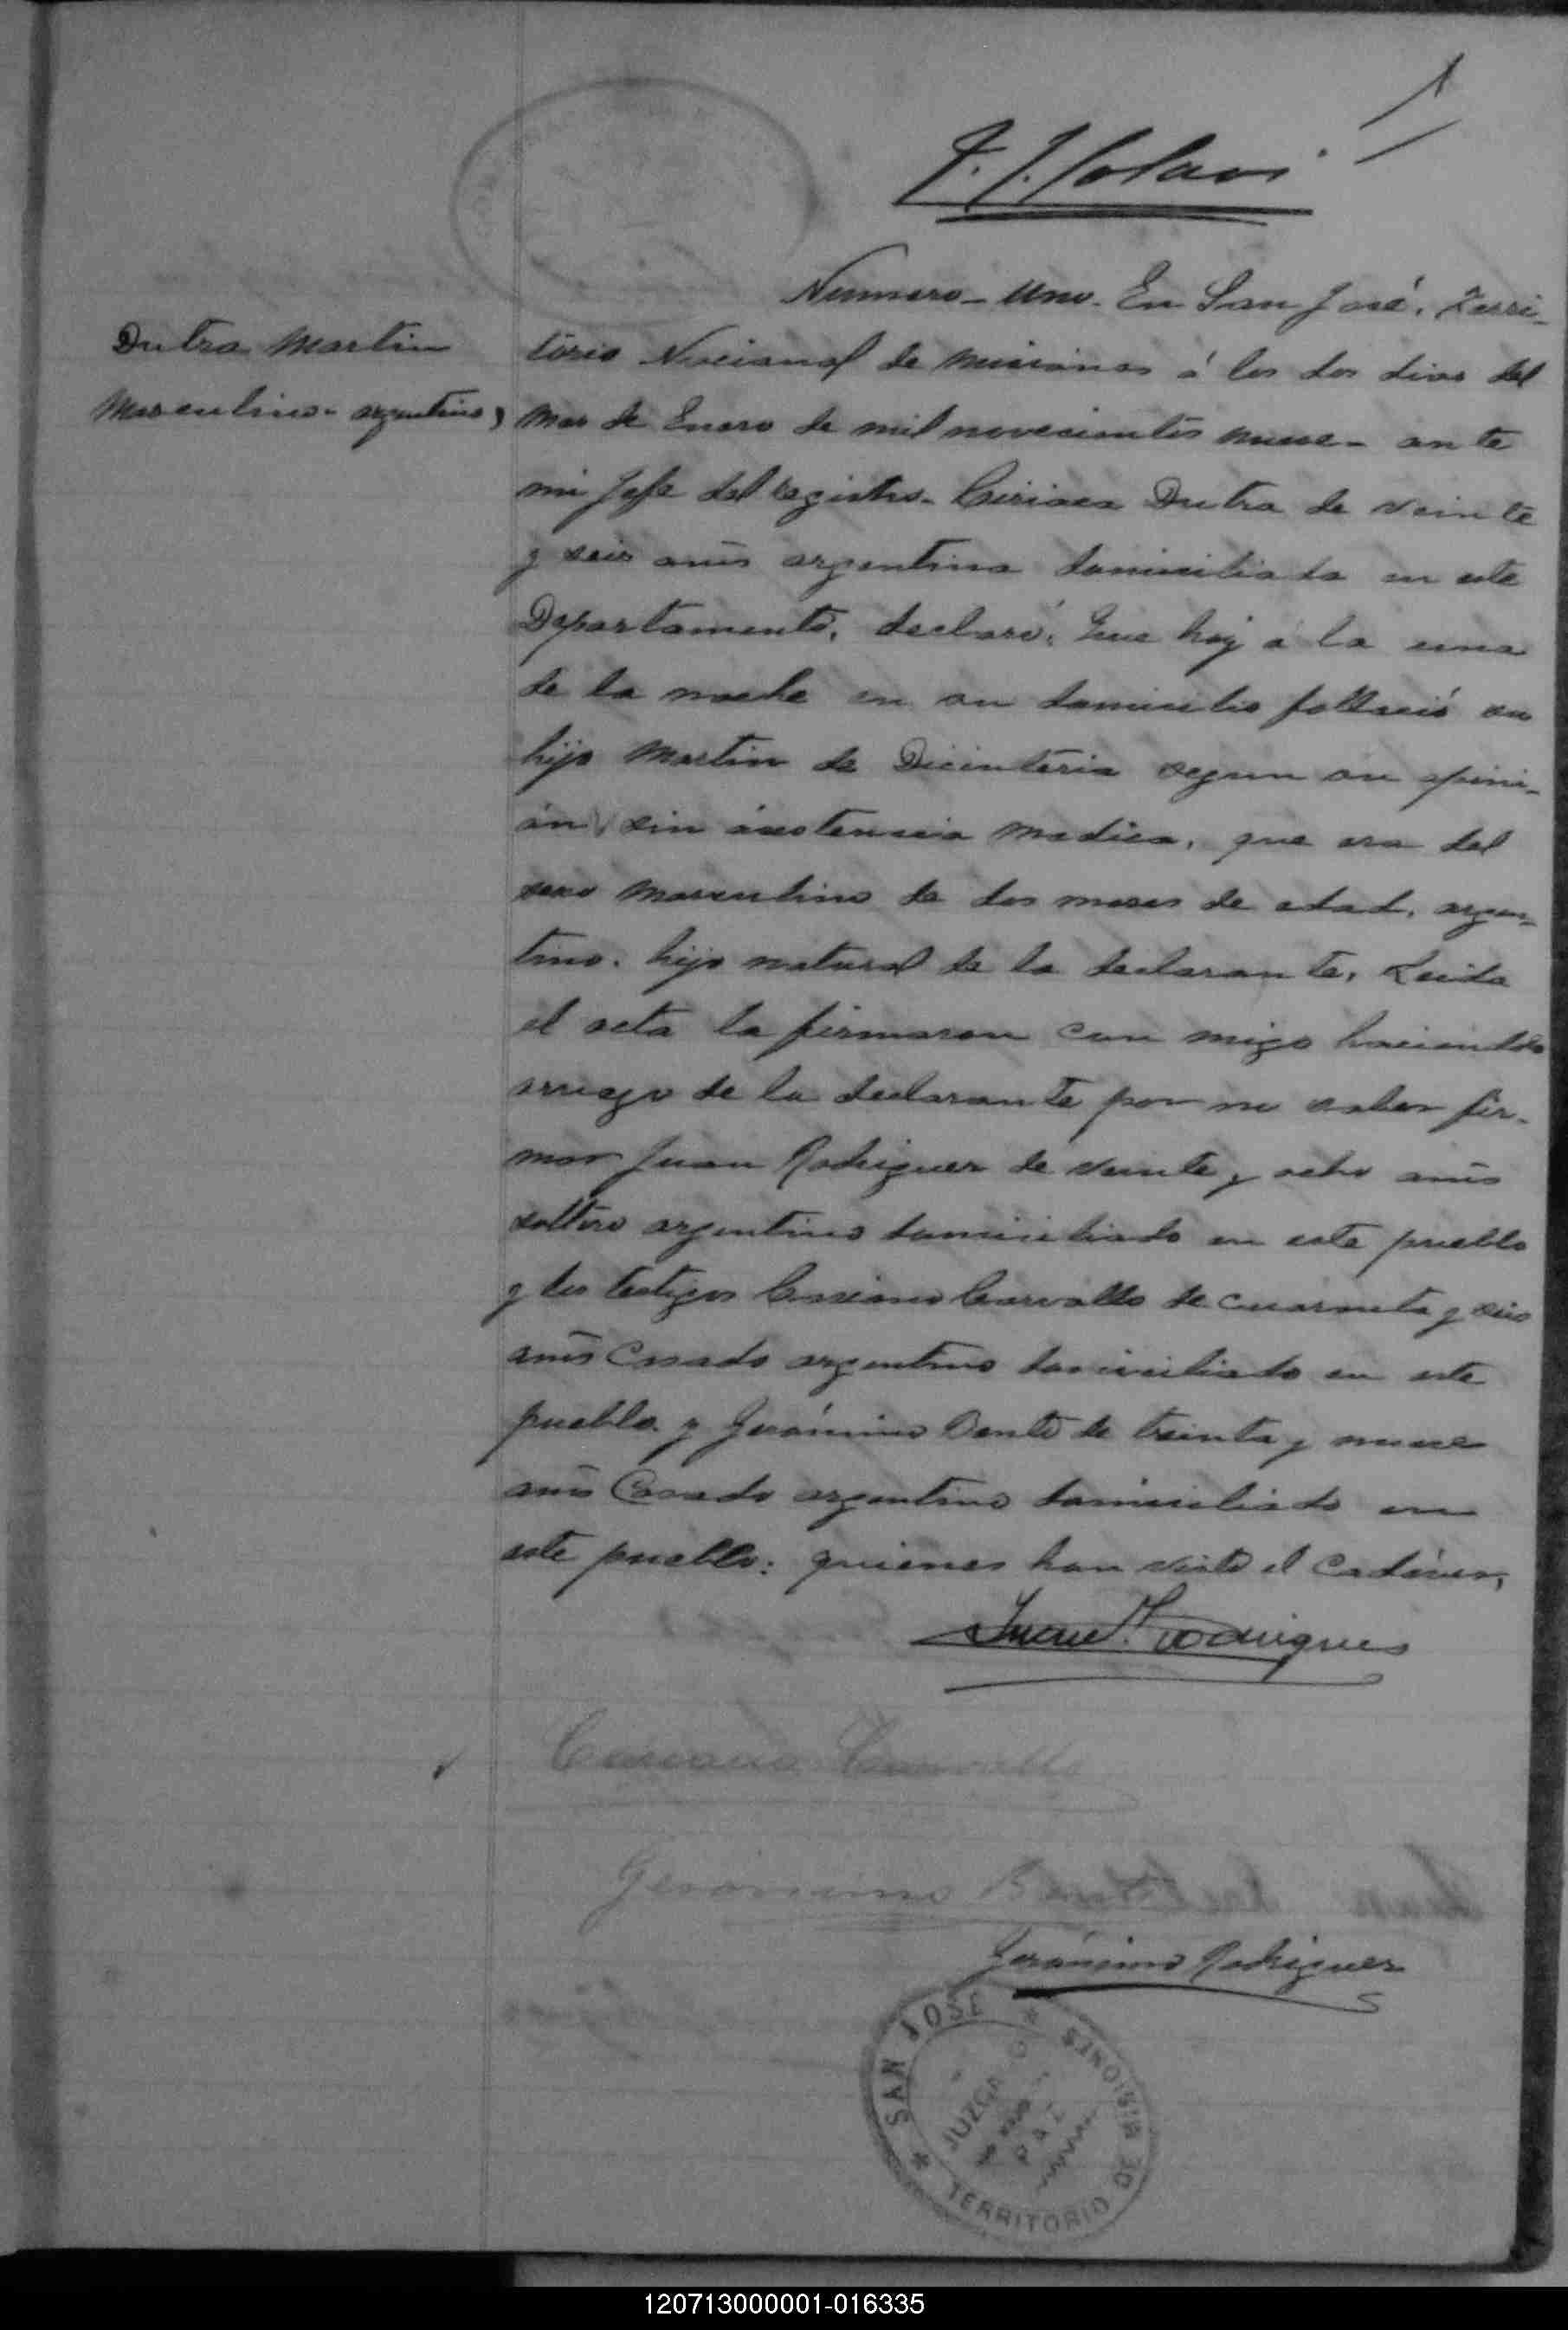 1
Numero - Uno - En San José, Terri-
Dutra Martin
Masculino - argentino,
torio Nacional de Misiones á los dos dias del
mes de Enero de mil novecientos nueve - ante
mi Jefe del registro - Ciriaca Dutra de veinte
y seis años argentina domiciliada en este
Departamento, declaró: Que hoy á la una
de la noche en su domicilio falleció su
hijo Martin de Dicinteria segun su opini-
ón sin asistencia medica, que era del
sexo masculino de dos meses de edad, argen-
tino. hijo natural de la declarante, Leida
el acta la firmaron con migo haciendolo
arruego de la declarante por no saber fir-
mar Juan Rodriguez de veinte y ocho años
soltero argentino domiciliado en este pueblo
y los testigos Casiano Carvallo de cuarenta y seis
años Casado argentino domiciliado en este
pueblo. y Gerónimo Bente de treinta y nueve
años Casado argentino domiciliado en
este pueblo: quienes han visto el Cadáver,
Juan Rodrigues
Casiano Carvallo
Geronimo
Gerónimo Rodriguez
SAN JOSE * TERRITORIO DE MISIONES *
JUZGADO
DE
PAZ
120713000001-016335